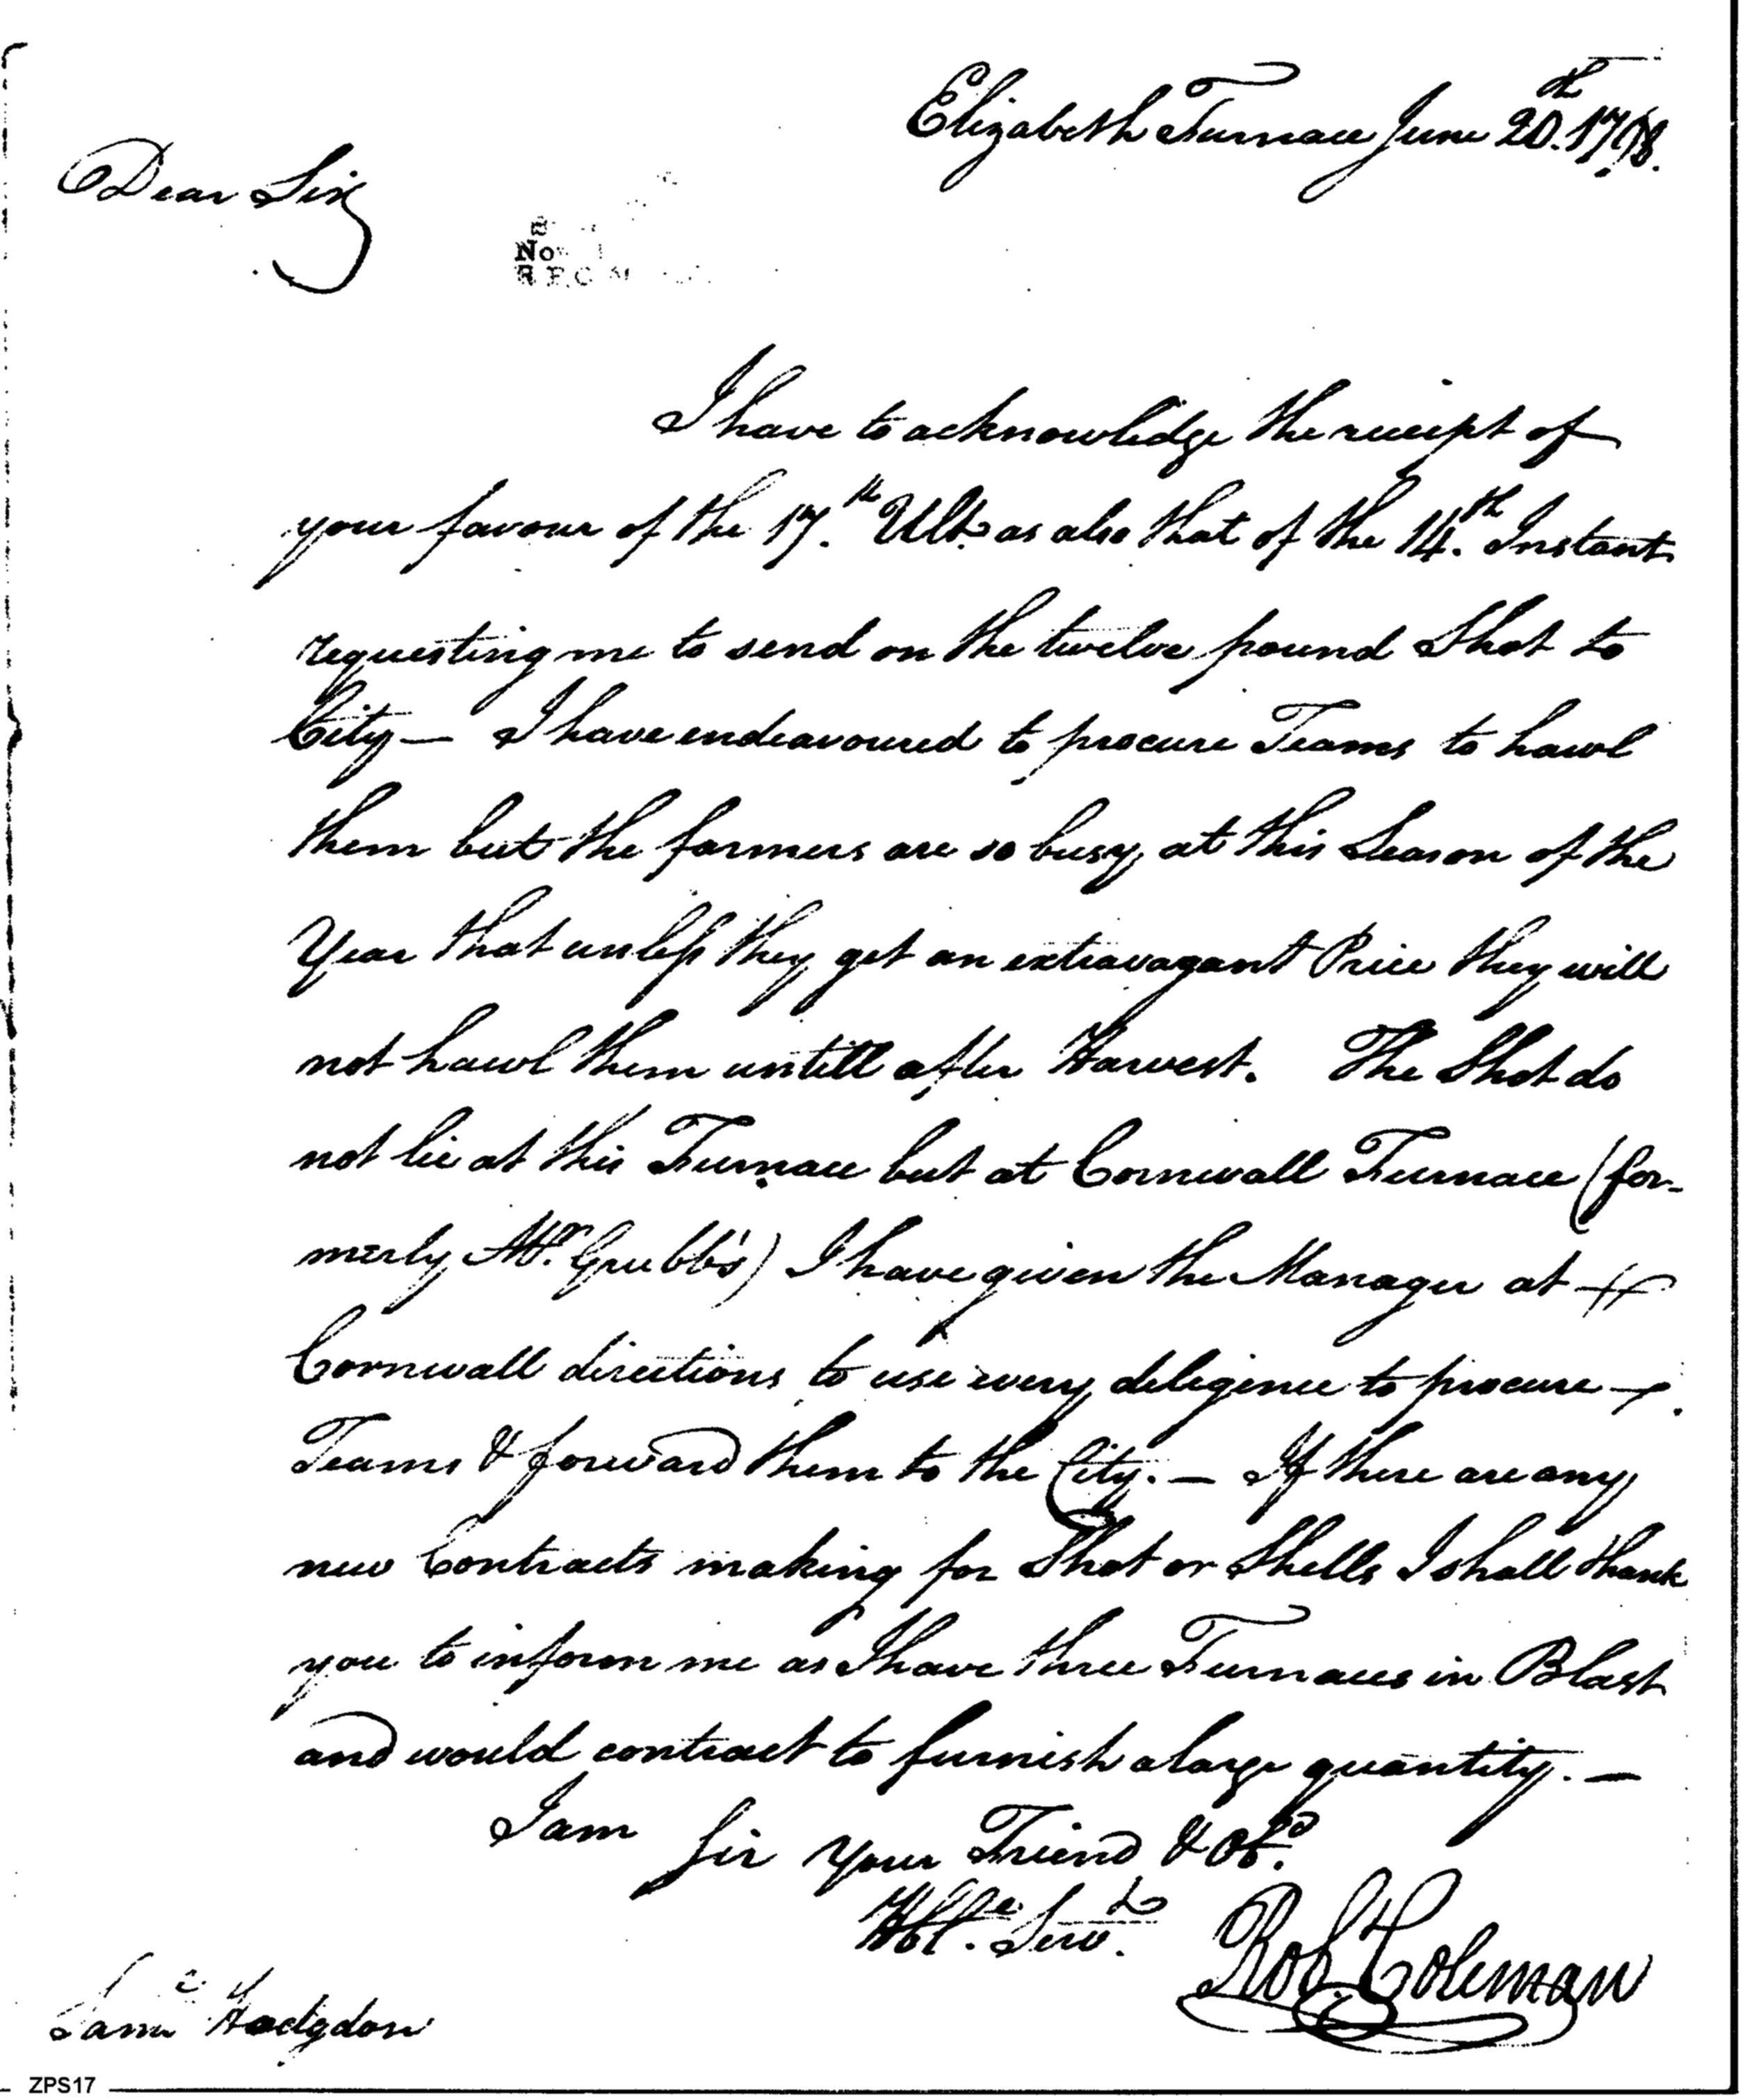 Elizabeth Furnace June 20.th 1798.
Dear Sir
No
I have to acknowledge the receipt of
your favour of the 17.th Ult. as also that of the 14.th Instant
requesting me to send on the twelve pound Shot to
City — I have endeavoured to procure Teams to hawl
them but the farmers are so busy at this Season of the
Year that unless they get an extravagant Price they will
not hawl them untill after Harvest. The Shot do
not lie at this Furnace but at Cornwall Furnace (for-
merly Mr. Grubb's) I have given the Manager at
Cornwall directions to use every diligence to procure
Teams & forward them to the City. — If there are any
new Contracts making for Shot or Shells I shall thank
you to inform me as I have three Furnaces in Blast
and would contract to furnish a large quantity. —
I am Sir your Friend & Ob.d
Hble. Servt.
Rob. Coleman
Saml Hodgdon
ZPS17